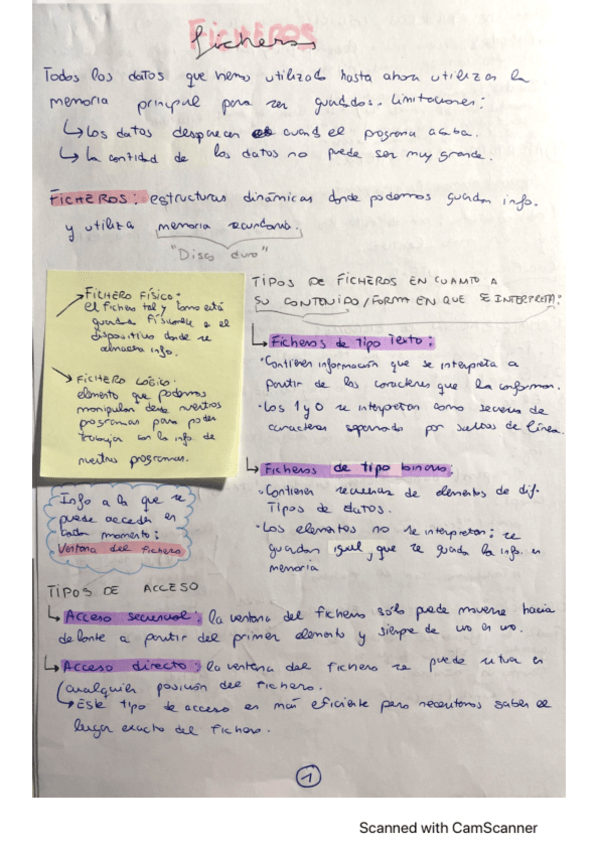 FICHEROS
Ficheros
Todos los datos que hemos utilizado hasta ahora utilizan la
memoria principal para ser guardados. Limitaciones:
↳ Los datos desaparecen cuand el programa acaba.
↳ La cantidad de los datos no puede ser muy grande.
FICHEROS: estructuras dinámicas donde podemos guardar info.
y utiliza memoria secundaria.
"Disco duro"
FICHERO FÍSICO:
el fichero tal y como está
guardado físicamente en el
dispositivo donde se
almacena info.
FICHERO LÓGICO:
elemento que podemos
manipular desde nuestros
programas para poder
trabajar con la info. de
nuestros programas.
Info a la que se
puede acceder en
cada momento:
Ventana del fichero
TIPOS DE FICHEROS EN CUANTO A
SU CONTENIDO/FORMA EN QUE SE INTERPRETA:
↳ Ficheros de tipo Texto:
· Contienen información que se interpreta a
partir de los caracteres que la conforman.
· Los 1 y 0 se interpretan como secuencias de
caracteres separados por saltos de línea.
↳ Ficheros de tipo binario:
· Contienen secuencias de elementos de dif.
Tipos de datos.
· Los elementos no se interpretan; se
guardan igual que se guarda la info. en
memoria
TIPOS DE ACCESO
↳ Acceso secuencial: la ventana del fichero sólo puede moverse hacia
delante a partir del primer elemento y siempre de uno en uno.
↳ Acceso directo: la ventana del fichero se puede situar en
cualquier posición del fichero.
↳ Este tipo de acceso es más eficiente pero necesitamos saber el
lugar exacto del fichero.
1
Scanned with CamScanner